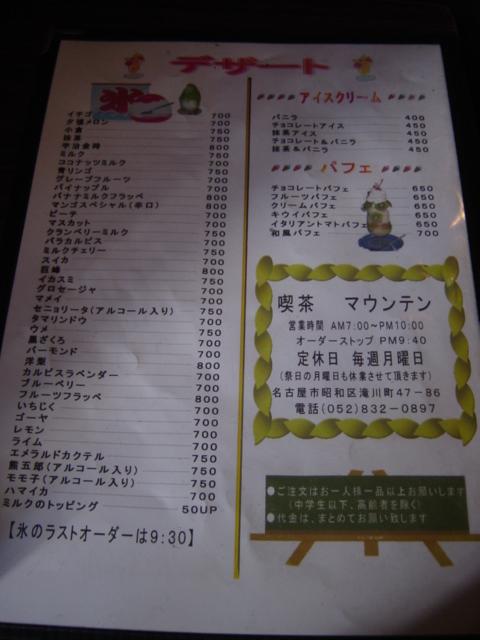 デザート
氷
イチゴ 700
夕張メロン 700
小倉 750
抹茶 700
宇治金時 800
ミルク 750
ココナッツミルク 750
青リンゴ 700
グレープフルーツ 700
パイナップル 700
バナナミルクフラッペ 800
マンゴスペシャル(辛口) 800
ピーチ 700
マスカット 700
クランベリーミルク 750
パラカルピス 750
ミルクチェリー 750
スイカ 700
巨峰 800
イカスミ 750
グロセージャ 750
マメイ 700
セニョリータ(アルコール入り) 750
タマリンドウ 700
ウメ 700
黒ざくろ 700
バーモンド 700
洋梨 800
カルピスラベンダー 700
ブルーベリー 700
フルーツフラッペ 800
いちじく 700
ゴーヤ 700
レモン 700
ライム 700
エメラルドカクテル 750
熊五郎(アルコール入り) 750
モモ子(アルコール入り) 750
ハマイカ 700
ミルクのトッピング 50UP
【氷のラストオーダーは9:30】
アイスクリーム
バニラ 400
チョコレートアイス 450
抹茶アイス 450
チョコレート&バニラ 450
抹茶&バニラ 450
パフェ
チョコレートパフェ 650
フルーツパフェ 650
クリームパフェ 650
キウイパフェ 650
イタリアントマトパフェ 650
和風パフェ 700
喫茶 マウンテン
営業時間 AM7:00~PM10:00
オーダーストップ PM9:40
定休日 毎週月曜日
(祭日の月曜日も休業させて頂きます)
名古屋市昭和区滝川町47-86
電話(052)832-0897
●ご注文はお一人様一品以上お願いします
(中学生以下、高齢者を除く)
●代金は、まとめてお願い致します